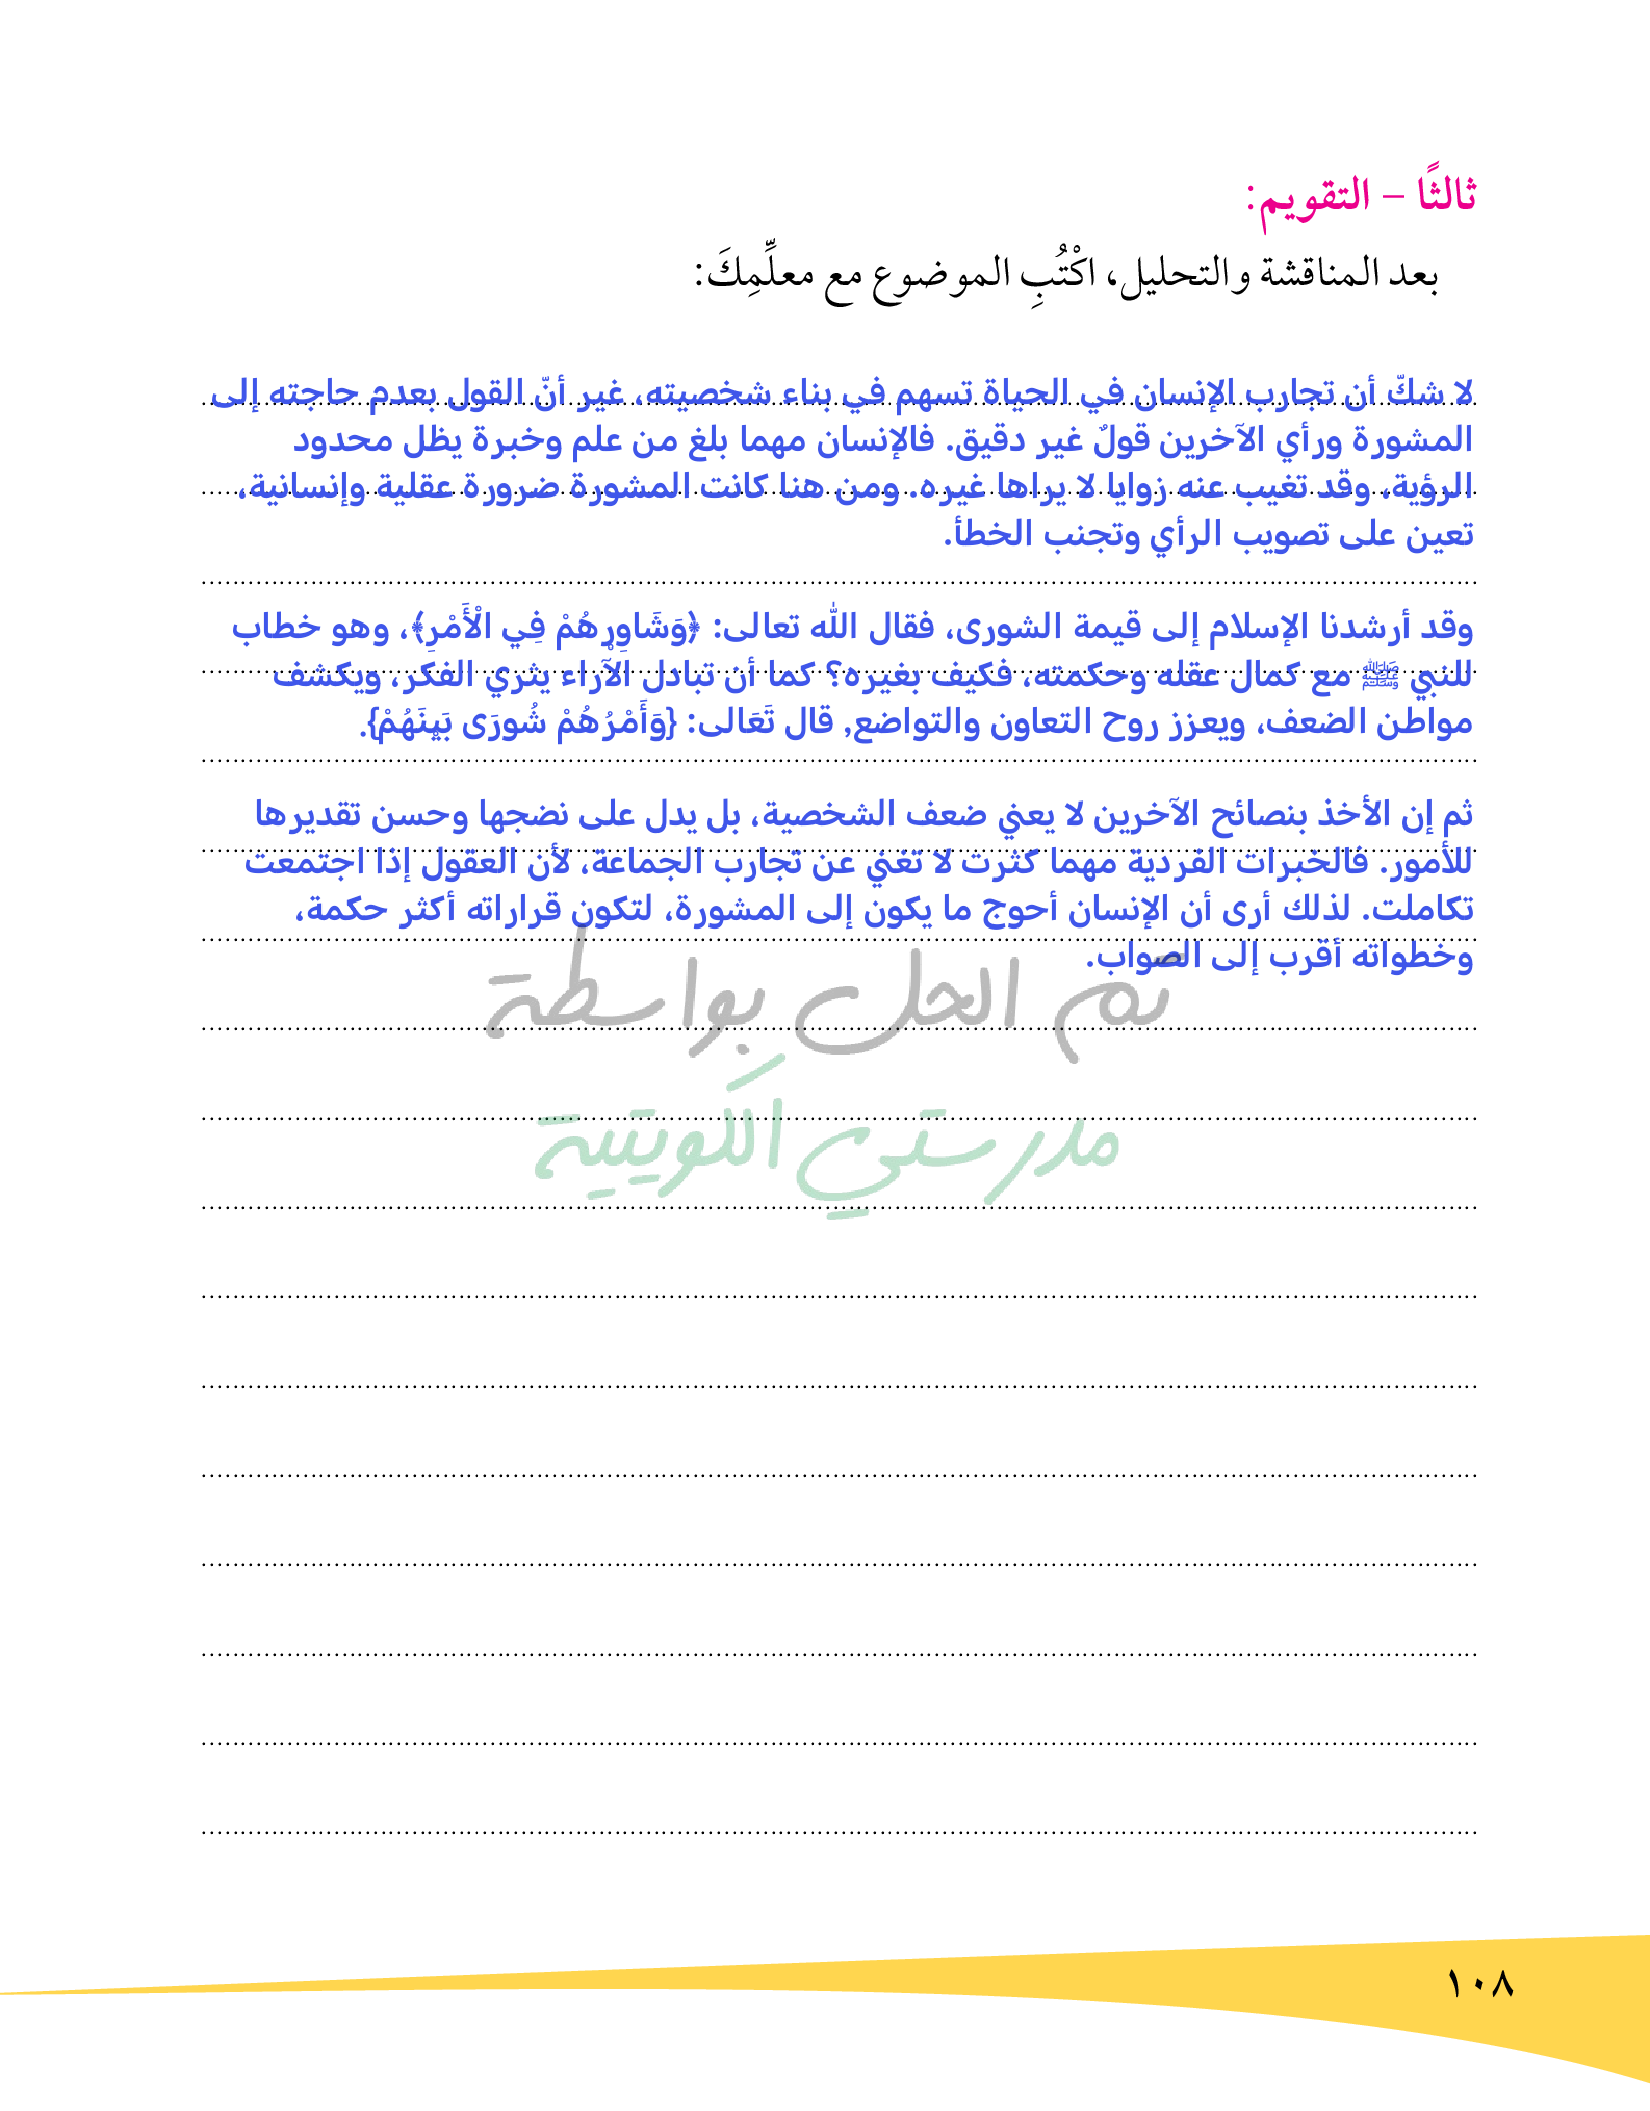 ثالثًا – التقويم:
بعد المناقشة والتحليل، اكْتُبِ الموضوع مع معلِّمِكَ:
لا شكّ أن تجارب الإنسان في الحياة تسهم في بناء شخصيته، غير أنّ القول بعدم حاجته إلى
المشورة ورأي الآخرين قولٌ غير دقيق. فالإنسان مهما بلغ من علم وخبرة يظل محدود
الرؤية، وقد تغيب عنه زوايا لا يراها غيره. ومن هنا كانت المشورة ضرورة عقلية وإنسانية،
تعين على تصويب الرأي وتجنب الخطأ.
وقد أرشدنا الإسلام إلى قيمة الشورى، فقال الله تعالى: ﴿وَشَاوِرْهُمْ فِي الْأَمْرِ﴾، وهو خطاب
للنبي ﷺ مع كمال عقله وحكمته، فكيف بغيره؟ كما أن تبادل الآراء يثري الفكر، ويكشف
مواطن الضعف، ويعزز روح التعاون والتواضع, قال تَعَالى: {وَأَمْرُهُمْ شُورَى بَيْنَهُمْ}.
ثم إن الأخذ بنصائح الآخرين لا يعني ضعف الشخصية، بل يدل على نضجها وحسن تقديرها
للأمور. فالخبرات الفردية مهما كثرت لا تغني عن تجارب الجماعة، لأن العقول إذا اجتمعت
تكاملت. لذلك أرى أن الإنسان أحوج ما يكون إلى المشورة، لتكون قراراته أكثر حكمة،
وخطواته أقرب إلى الصواب.
تم الحل بواسطة
مدرستي الكويتية
١٠٨